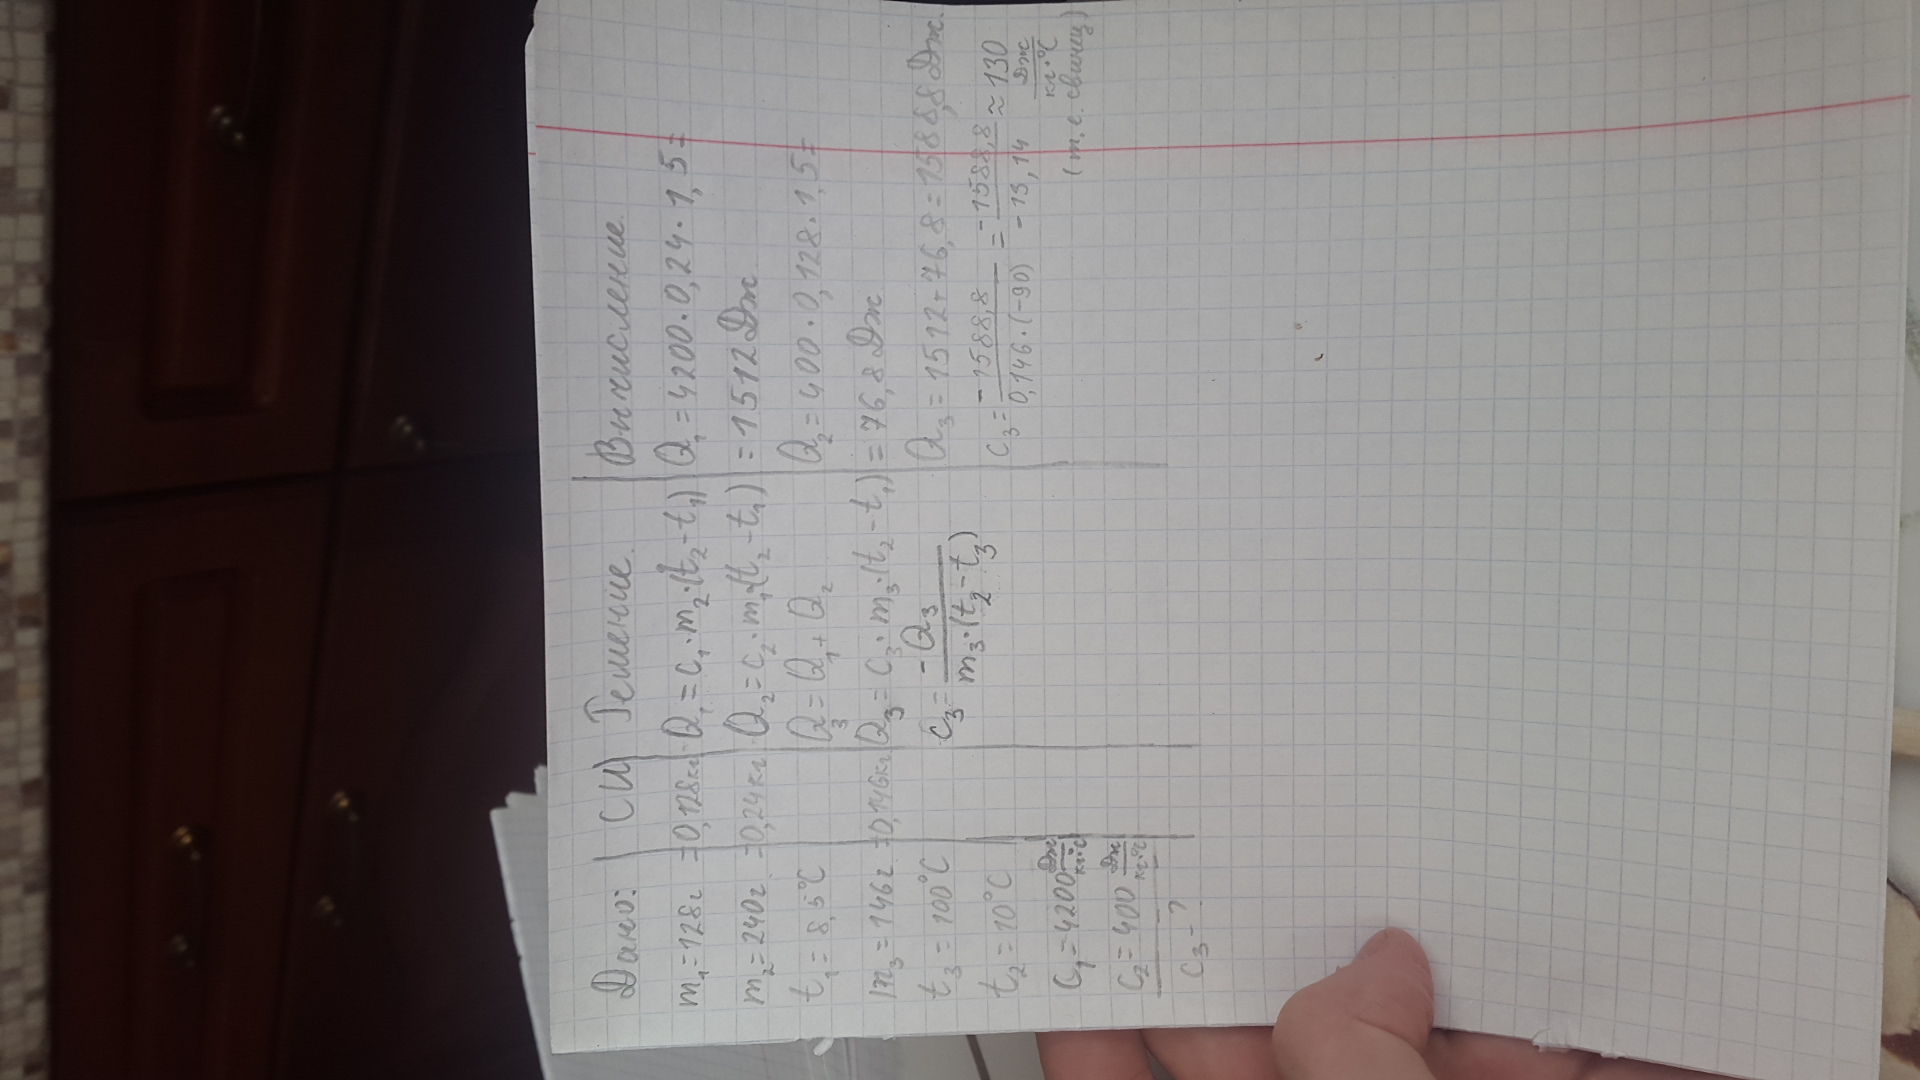 Дано:
m₁=128г
m₂=240г
t₁=8,5°C
m₃=146г
t₃=100°C
t₂=10°C
C₁=4200 Дж/кг·°C
C₂=400 Дж/кг·°C
C₃-?
СИ
=0,128кг
=0,24кг
=0,146кг
Решение.
Q₁=C₁·m₂·(t₂-t₁)
Q₂=C₂·m₁·(t₂-t₁)
Q₃=Q₁+Q₂
Q₃=C₃·m₃·(t₂-t₁)
C₃=-Q₃/m₃·(t₂-t₃)
Вычисление.
Q₁=4200·0,24·1,5=
=1512Дж
Q₂=400·0,128·1,5=
=76,8Дж
Q₃=1512+76,8=1588,8Дж.
C₃=-1588,8/0,146·(-90)=-1588,8/-13,14≈130 Дж/кг·°C
(т.е. свинец)